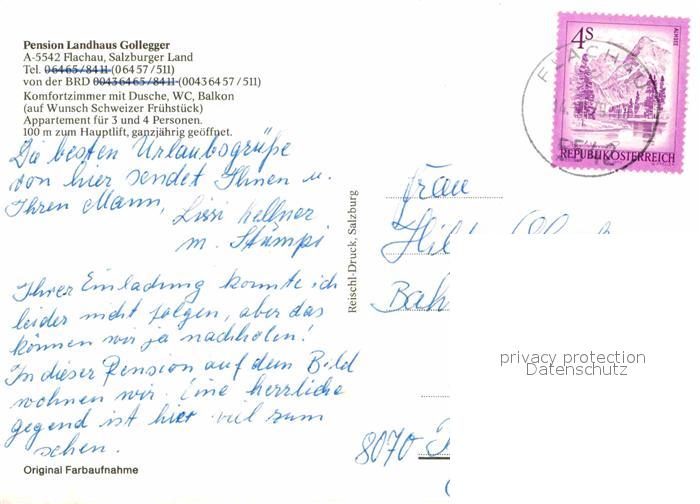 Pension Landhaus Gollegger
A-5542 Flachau, Salzburger Land
Tel. 06465/8411 (06457/511)
von der BRD 00436465/8411 (00436457/511)
Komfortzimmer mit Dusche, WC, Balkon
(auf Wunsch Schweizer Frühstück)
Appartement für 3 und 4 Personen.
100 m zum Hauptlift, ganzjährig geöffnet.
Die besten Urlaubsgrüße
von hier sendet Ihnen u.
Ihren Mann, Lissi Kellner
m. Stumpi
Ihrer Einladung konnte ich
leider nicht folgen, aber das
können wir ja nachholen!
In dieser Pension auf dem Bild
wohnen wir. Eine herrliche
gegend ist hier viel zum
sehen.
Original Farbaufnahme
Reischl-Druck, Salzburg
4S
ALMSEE
REPUBLIK ÖSTERREICH
FLACHAU
5542
Frau
8070
privacy protection
Datenschutz